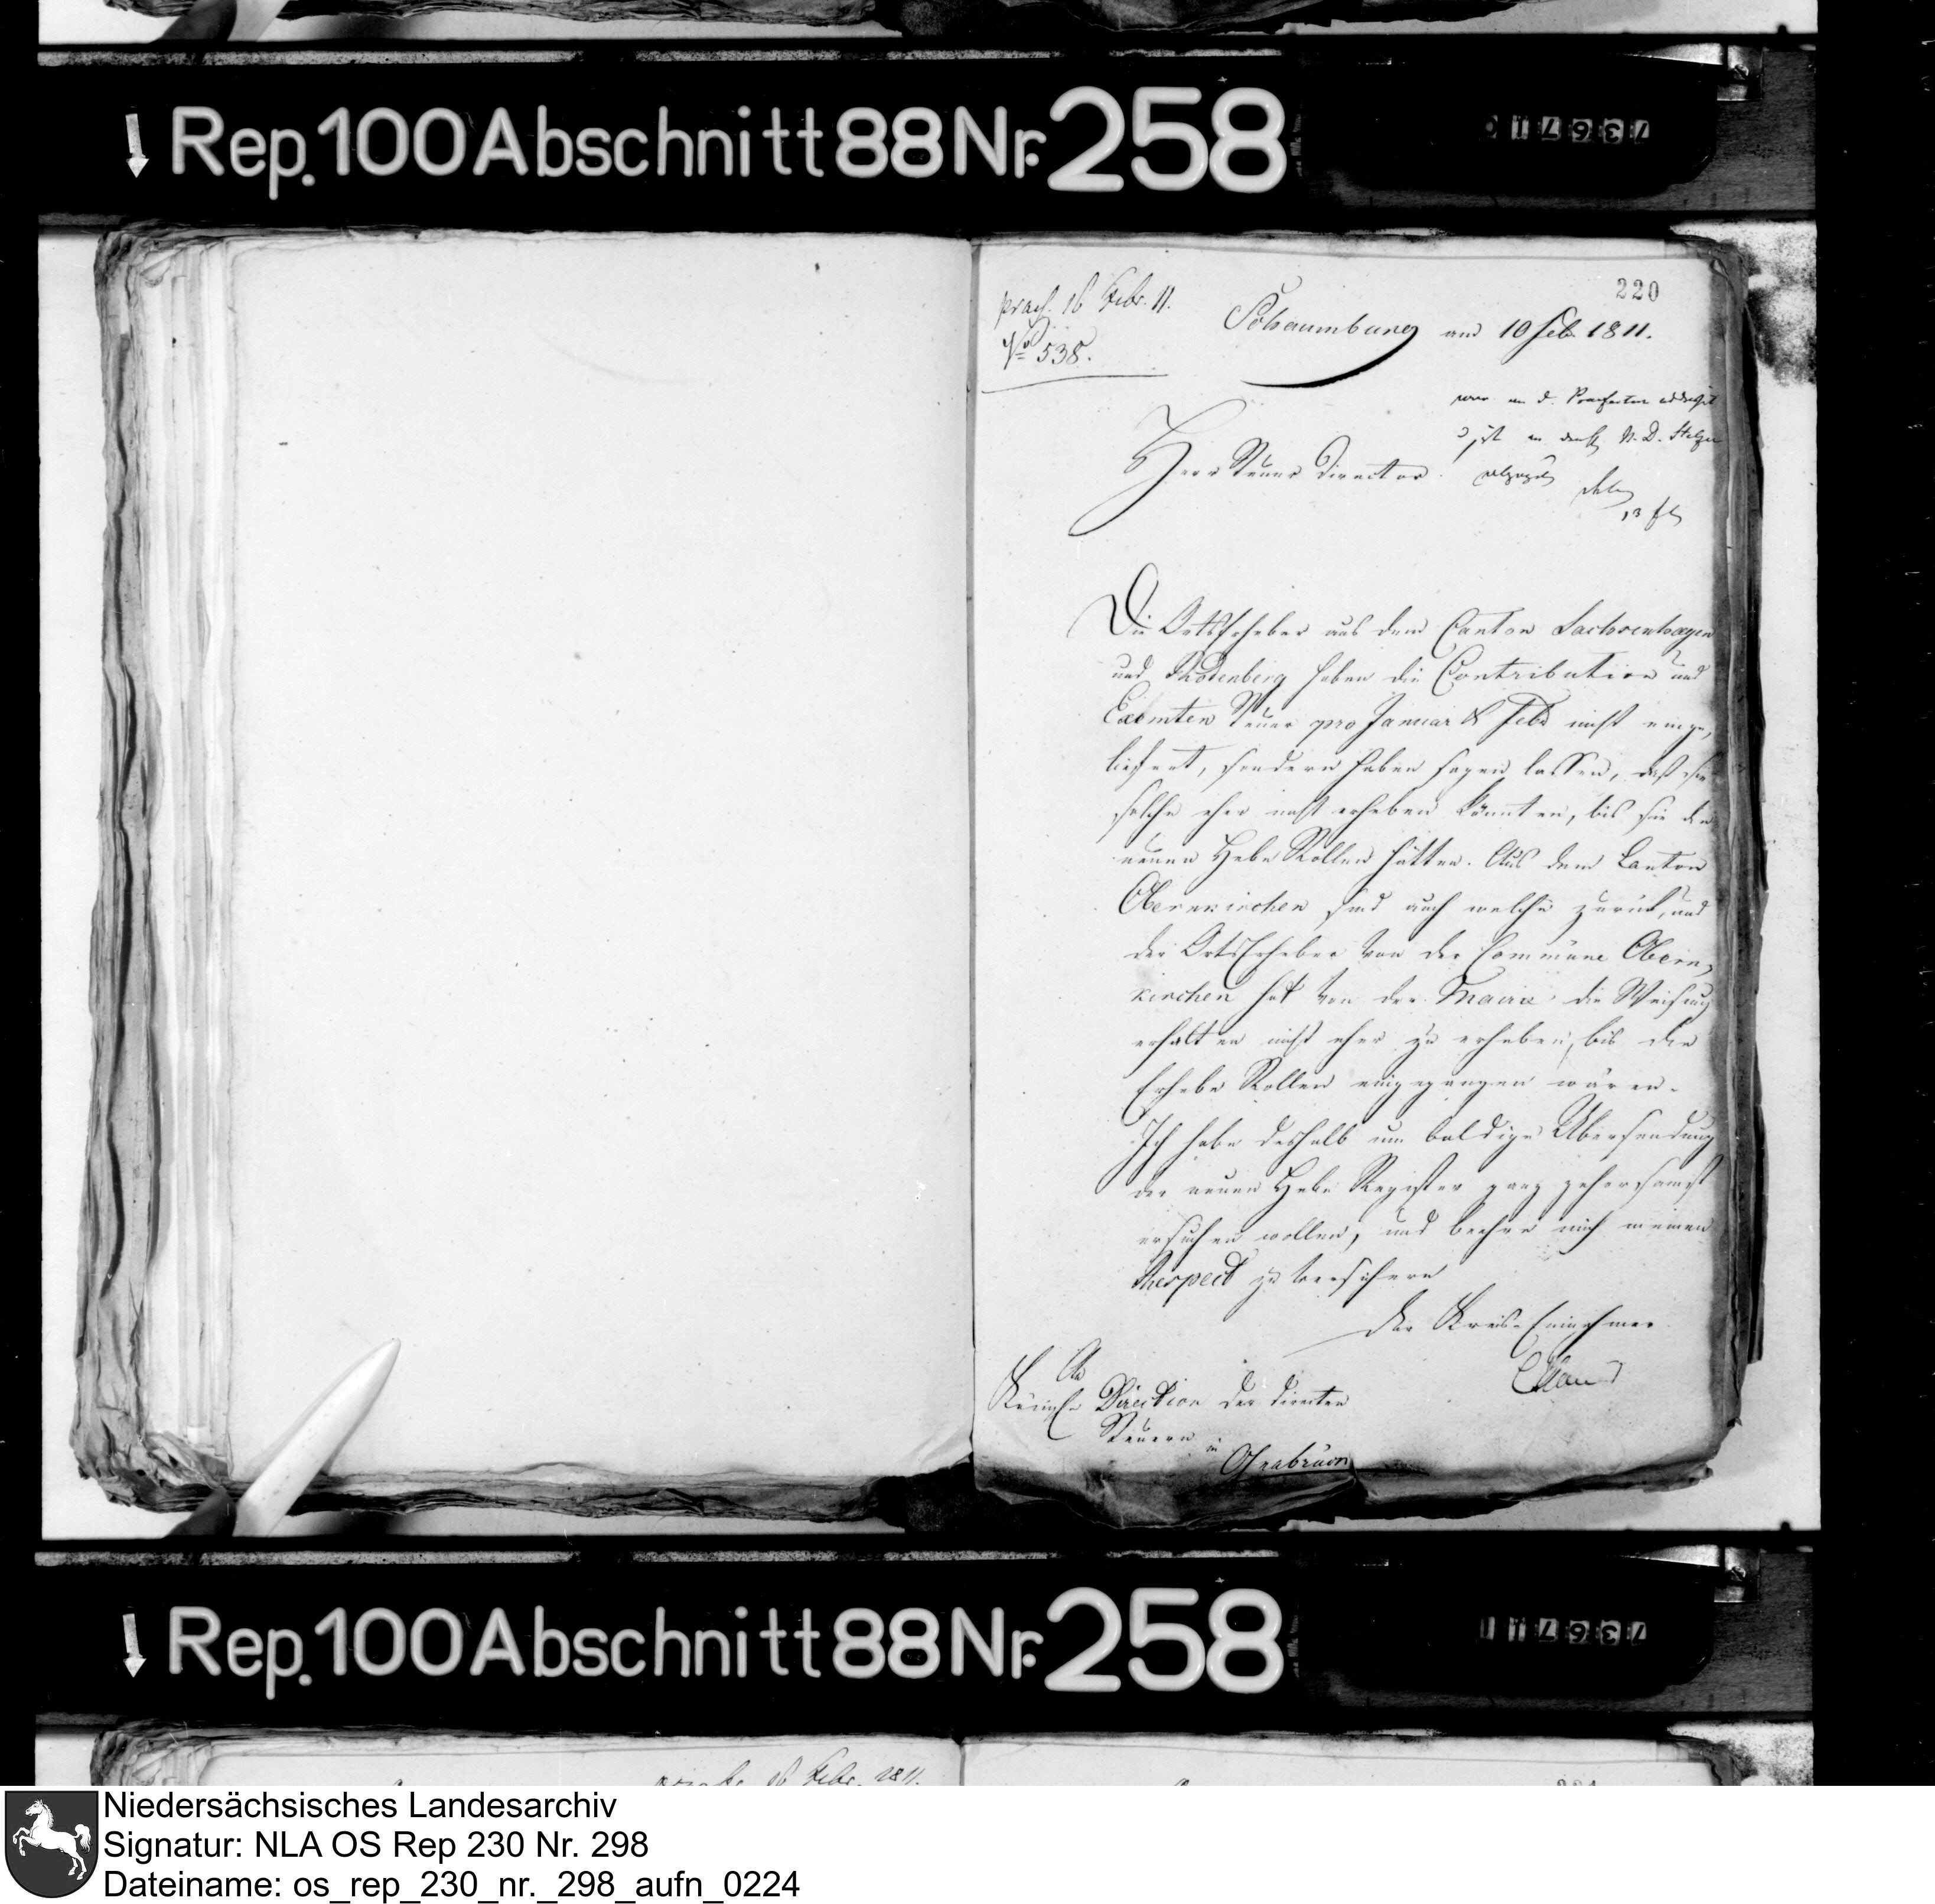 Rep. 100 Abschnitt 88 Nr. 258
220
praes. 16 Febr. 11.
No 538.
Schaumburg am 10 Feb. 1811.
war an d. Praefectur
ist an N. D.
Herr Steuer Director.
Die OrtsErheber aus dem Canton Sachsenhagen
und Rodenberg haben die Contribution und
Exemten Steuer pro Januar & Febr nicht einge,
liefert, sondern haben sagen lassen, daß sie
solche eher nicht erheben könnten, bis sie die
neuen Hebe Rollen hätten. Aus dem Canton
Obernkirchen sind auch welche zurück, und
der OrtsErheber von der Commüne Obern,
kirchen hat von der Mairie die Weisung
erhalten nicht eher zu erheben, bis die
Erhebe Rollen eingegangen wären.
Ich habe deshalb um baldige Übersendung
der neuen Hebe Register ganz gehorsamst
ersuchen wollen, und beehre mich meinen
Respect zu versichern
Der Kreis-Einnehmer
An
Königl. Direction der directen
Steuern in
Osnabrück
Rep. 100 Abschnitt 88 Nr. 258
16 Febr. 1811.
Niedersächsisches Landesarchiv
Signatur: NLA OS Rep 230 Nr. 298
Dateiname: os_rep_230_nr._298_aufn_0224